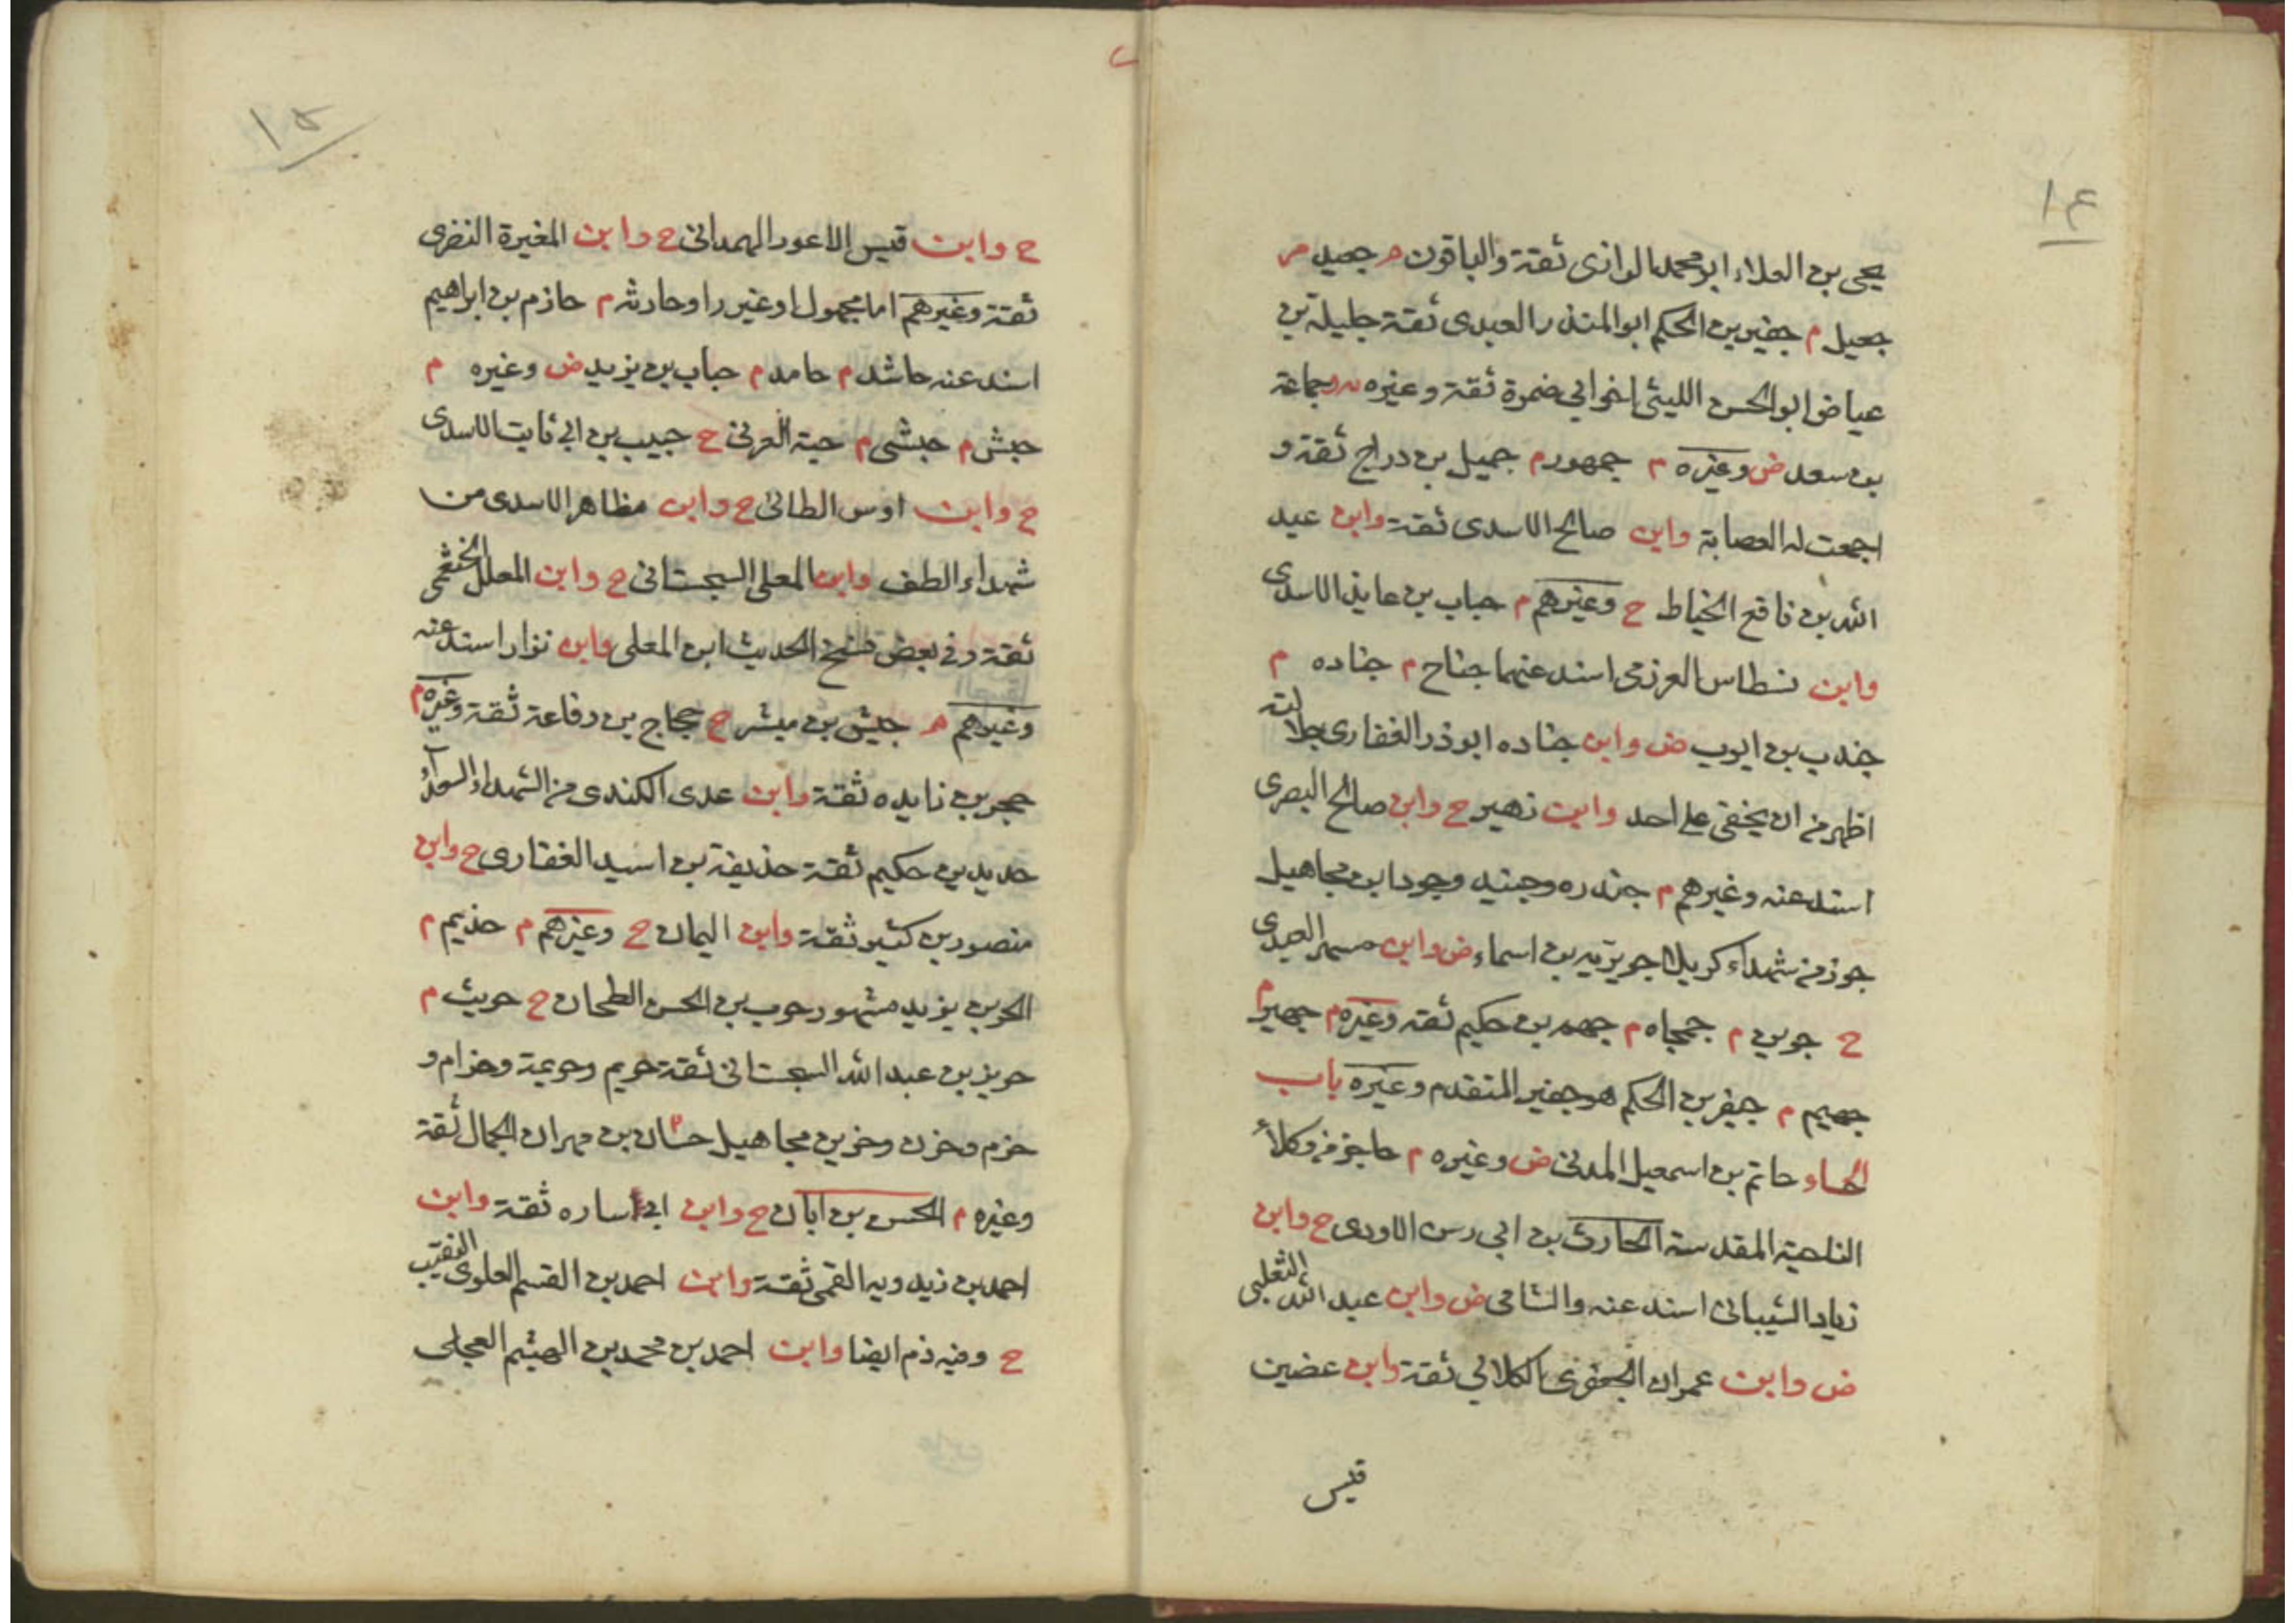 ١٤
يحيى بن العلاء ابو محمد الرازى ثقة والباقون م جعيد م
جعيل م جفير بن الحكم ابو المنذر العبدى ثقة جليله بن
عياض ابو الحسن الليثى اخو ابى ضمرة ثقة وغيره جماعة
بن سعد ض وغيره م جمهور م جميل بن دراج ثقة و
اجمعت له العصابة وابن صالح الاسدى ثقة وابن عبد
الله بن نافع الخياط ح وغيرهم م جناب بن عايذ الاسدى
وابن نسطاس العرزمى اسند عنهما جناح م جناده م
جندب بن ايوب ض وابن جناده ابوذر الغفارى جلالته
اظهر من ان يخفى على احد وابن زهير ح وابن صالح البصرى
اسند عنه وغيرهم م جندره وجنيد وجودابن مجاهيل
جون من شهداء كربلا جويريه بن اسماء ض وابن مسهر العبدى
ح جوين م جهجاه م جهم بن حكيم ثقة وغيره م جهير م
جهيم م جيفر بن الحكم هو جفير المتقدم وغيره باب
الحاء حاتم بن اسمعيل المدنى ض وغيره م حاجز من وكلاء
الناحية المقدسة الحارث بن ابى رسن الاودى ح وابن
زياد الشيبانى اسند عنه والشامى ض وابن عبد الله الثعلبى
ض وابن عمران الجعفرى الكلابى ثقة وابن غضين
قيس
١٥
ح وابن قيس الاعور الهمدانى ح وابن المغيرة النضرى
ثقة وغيرهم اما مجهول او غير راو حارثه م حازم بن ابراهيم
اسند عنه حاشد م حامد م حباب بن يزيد ض وغيره م
حبش م حبشى م حبة العرنى ح حبيب بن ابى ثابت الاسدى
ح وابن اوس الطائى ح وابن مظاهر الاسدى من
شهداء الطف وابن المعلى السجستانى ح وابن المعلل الخثعمى
ثقة وفى بعض نسخ الحديث ابن المعلى وابن نزار اسند عنه
وغيرهم م حبيش بن مبشر ح حجاج بن رفاعة ثقة وغيره م
حجر بن زايده ثقة وابن عدى الكندى من الشهداء السعداء
حديد بن حكيم ثقة حذيفة بن اسيد الغفارى ح وابن
منصور بن كثير ثقة وابن اليمان ح وغيرهم م حذيم م
الحر بن يزيد مشهور حرب بن الحسن الطحان ح حريث م
حريز بن عبد الله السجستانى ثقة حريم وحريمة وحزام و
حزم وحزن وحزين مجاهيل حسان بن مهران الجمال ثقة
وغيره م الحسن بن ابان ح وابن ابى ساره ثقة وابن
احمد بن زيدويه القمى ثقة وابن احمد بن القسم العلوى النقيب
ح وفيه ذم ايضا وابن احمد بن محمد بن الهيثم العجلى